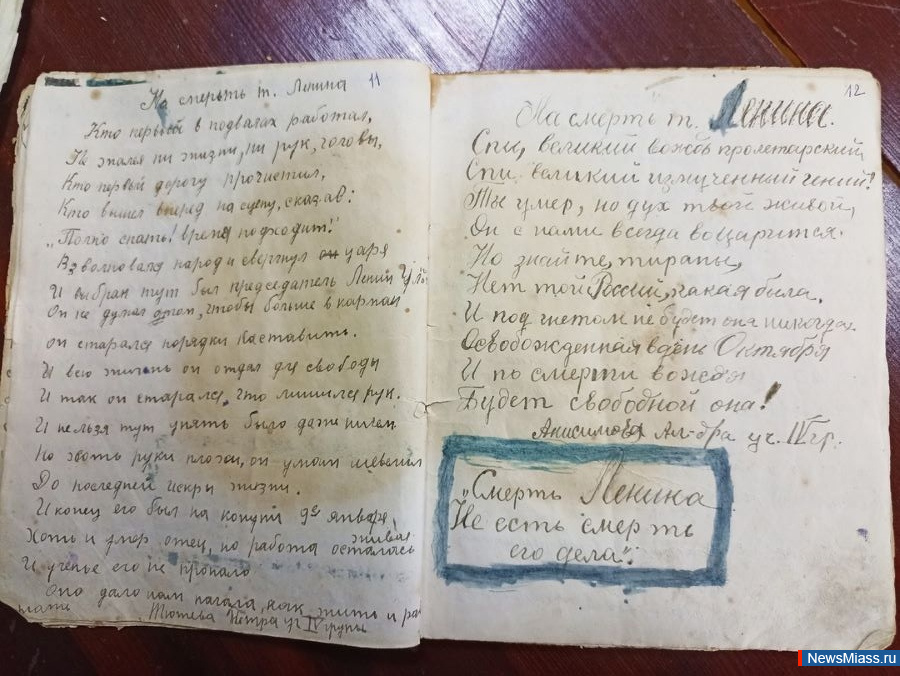 11
На смерть т. Ленина
Кто первый в подвалах работал,
Не жалея ни жизни, ни рук, головы,
Кто первый дорогу прочистил,
Кто вышел вперед на сцену, сказав:
„Полно спать! время подходит!"
Взволновался народ и свергнул он царя
И выбран тут был председатель Ленин
Он не думал о том, чтобы больше в карман
он старался порядки наставить.
И всю жизнь он отдал для свободы
И так он старался, что лишился рук.
И нельзя тут унять было даже ничем
Но хоть руки плохи, он умом шевелил
До последней искры жизни.
И конец его был на канун 9го января,
Хоть и умер отец, но работа осталась живая
И ученье его не пропало
Оно дало нам начала, как жить и ра
Тютева Петра уч IV группы
12
На смерть т. Ленина.
Спи, великий вождь пролетарский,
Спи великий измученный гений!
Ты умер, но дух твой живой,
Он с нами всегда воцарится.
Но знайте, тираны,
Нет той России, какая была.
И под гнетом не будет она никогда.
Освобожденная в день Октября
И по смерти вождя
Будет свободной она!
Анисимова Ал-дра уч. IV гр.
„Смерть Ленина
Не есть смерть
его дела".
NewsMiass.ru